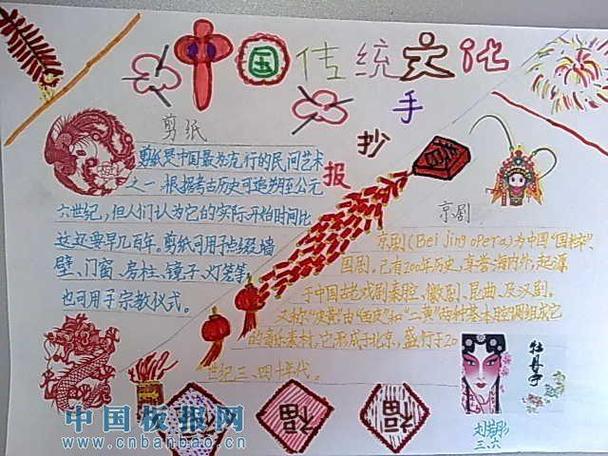 中国传统文化
手抄报
剪纸
剪纸是中国最为流行的民间艺术
之一,根据考古历史可追朔至公元
六世纪,但人们认为它的实际开始时间比
这还要早几百年。剪纸可用于点缀墙
壁、门窗、房柱、镜子、灯笼等,
也可用于宗教仪式。
京剧
京剧(Beijing opera)为中国"国粹",
国剧。已有200年历史,享誉海内外,起源
于中国古老戏剧秦腔、徽剧、昆曲、及汉剧。
的音乐素材。它形成于北京,盛行于20
世纪三、四十年代。
牡丹亭
福
福
福
福
三、六
中国板报网
www.cnbanbao.cn